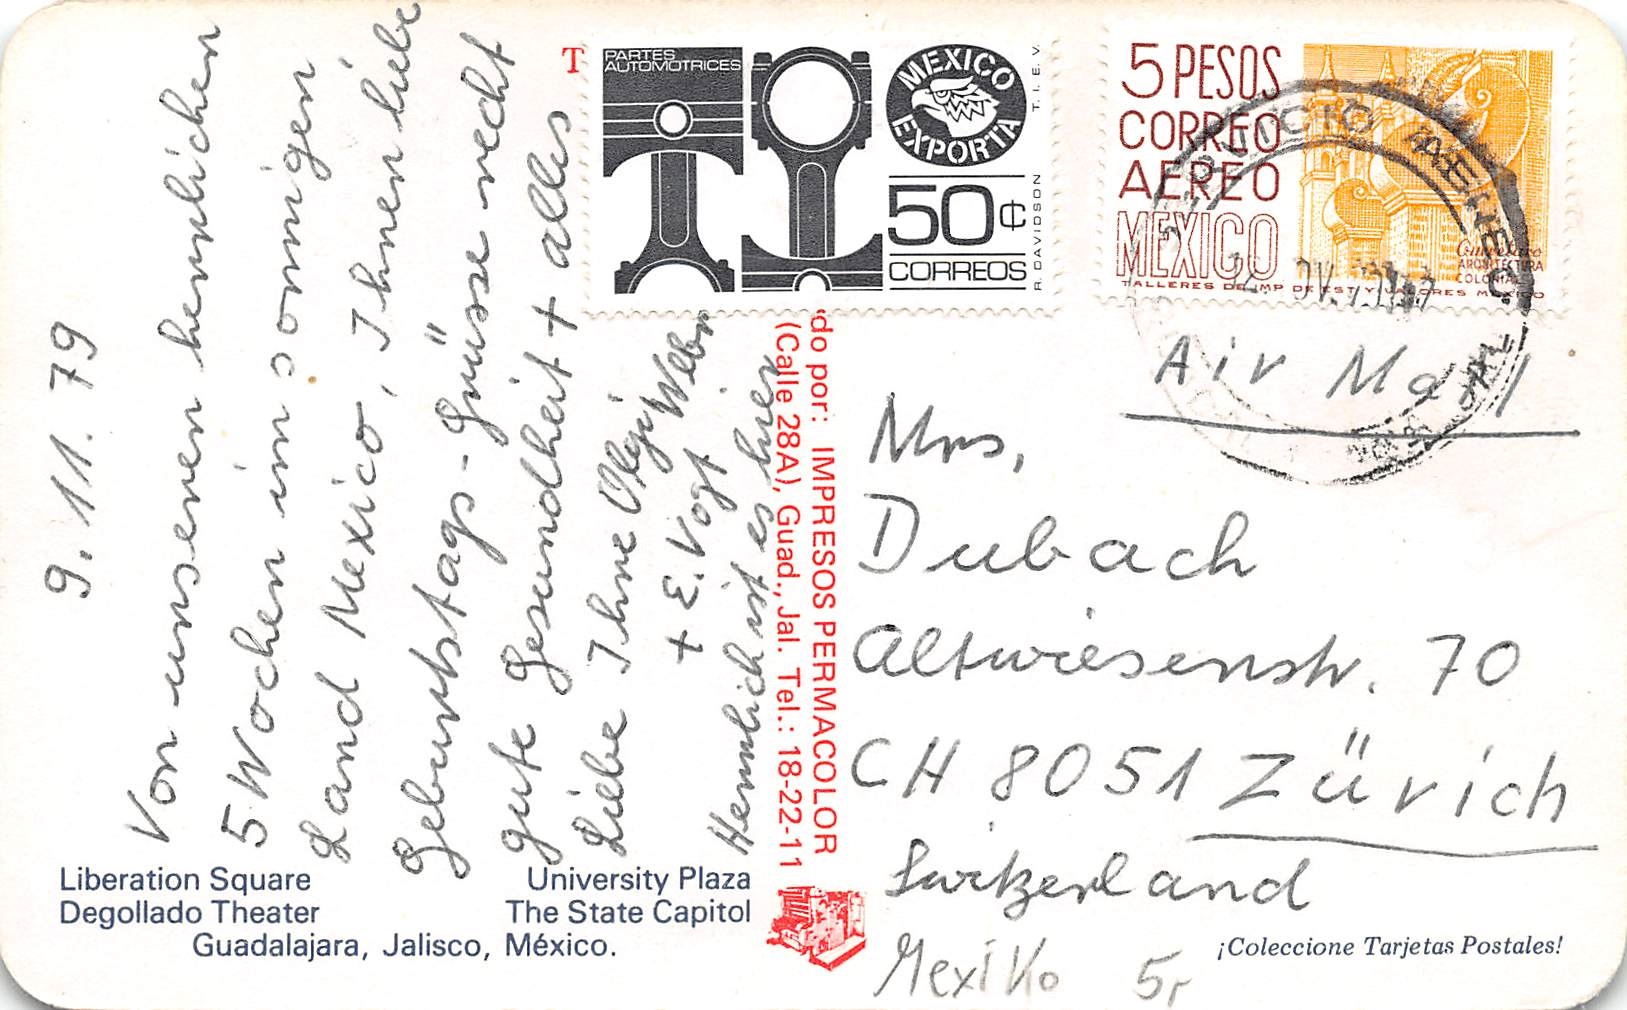 9.11.79
Von unseren herrlichen
5 Wochen im sonnigen
Land Mexico, Ihnen liebe
Geburtstags-Grüsse recht
gute Gesundheit + alles
Liebe Ihre
+ E. Vogt
Herrlich ist es hier
Liberation Square
Degollado Theater
University Plaza
The State Capitol
Guadalajara, Jalisco, México.
do por: IMPRESOS PERMACOLOR
(Calle 28A), Guad., Jal. Tel.: 18-22-11
T
PARTES
AUTOMOTRICES
MEXICO
EXPORTA
50¢
CORREOS
T.I.E.V.
R. DAVIDSON
5 PESOS
CORREO
AEREO
MEXICO
Cuernavaca
ARQUITECTURA
COLONIAL
TALLERES DE IMP DE EST Y VALORES MEXICO
SERVICIO AEREO
Air Mail
Mrs,
Dubach
Altwiesenstr. 70
CH 8051 Zürich
Switzerland
Mexiko 5r
¡Coleccione Tarjetas Postales!